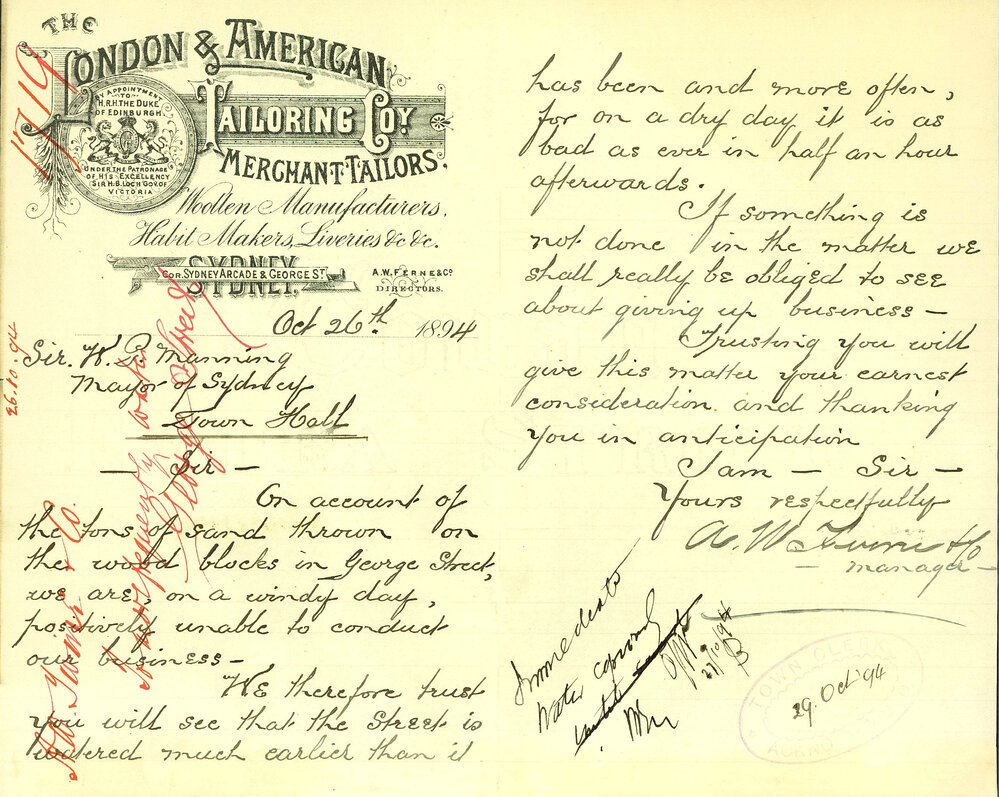 THE
LONDON & AMERICAN
TAILORING COY.
MERCHANT TAILORS.
BY APPOINTMENT
TO
H.R.H. THE DUKE
OF EDINBURGH
UNDER THE PATRONAGE
OF HIS EXCELLENCY
SIR H.B. LOCH GOV. OF
VICTORIA
Woollen Manufacturers,
Habit Makers, Liveries &c &c.
SYDNEY.
COR. SYDNEY ARCADE & GEORGE ST
A.W. FERNE & CO
DIRECTORS.
1719
26.10.94
Oct 26th 1894
Sir. W. P. Manning
Mayor of Sydney
Town Hall
— Sir —
On account of
the tons of sand thrown on
the wood blocks in George Street,
we are, on a windy day,
positively unable to conduct
our business —
We therefore trust
you will see that the Street is
watered much earlier than it
has been and more often,
for on a dry day it is as
bad as ever in half an hour
afterwards.
If something is
not done in the matter we
shall really be obliged to see
about giving up business —
Trusting you will
give this matter your earnest
consideration and thanking
you in anticipation
I am — Sir —
Yours respectfully
A. W. Ferne & Co
— manager —
Immediate
Water
27/10/94
TOWN CLERK
29. Oct 94
George Street